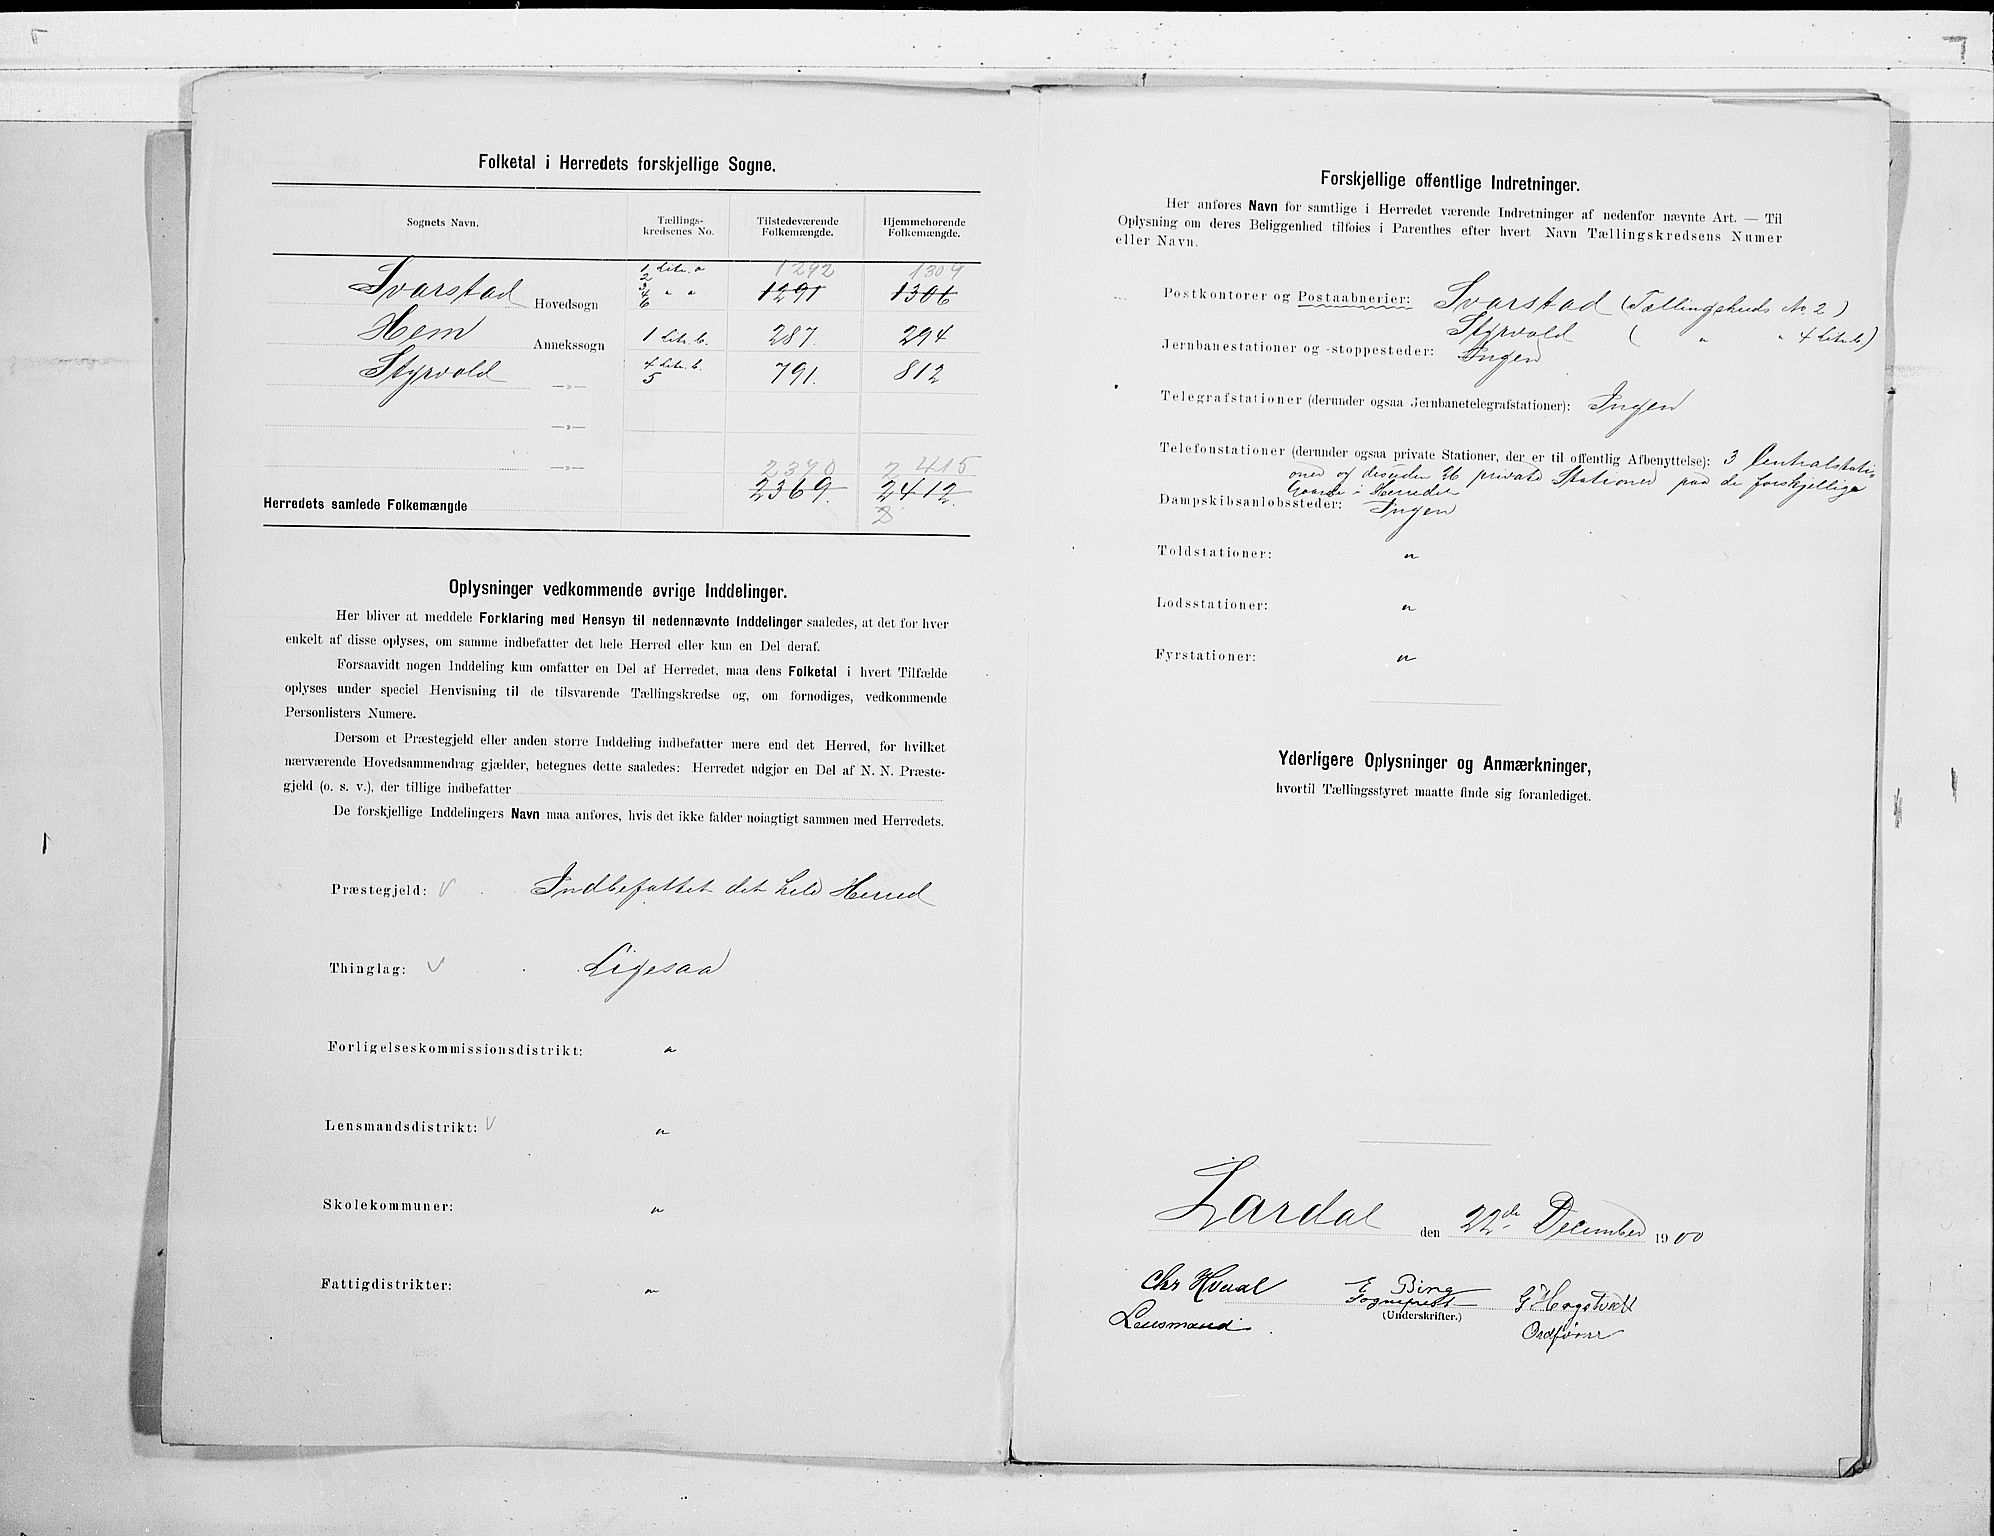 Folketal i Herredets forskjellige Sogne.
Sognets Navn. Tællings-kredsenes No. Tilstedeværende Folkemængde. Hjemmehørende Folkemængde.
1292 1309
Svarstad Hovedsogn 1 Litr. a 2 3 4 " " 6 1291 1306
Hem Annekssogn 1 Litr. b. 287. 294
Styrvold —»— 4 Litr. b. 5 791. 812
—»—
—»— 2370 2415
Herredets samlede Folkemængde 2369. 2412.
Oplysninger vedkommende øvrige Inddelinger.
Her bliver at meddele Forklaring med Hensyn til nedennævnte Inddelinger saaledes, at det for hver
enkelt af disse oplyses, om samme indbefatter det hele Herred eller kun en Del deraf.
Forsaavidt nogen Inddeling kun omfatter en Del af Herredet, maa dens Folketal i hvert Tilfælde
oplyses under speciel Henvisning til de tilsvarende Tællingskredse og, om fornødiges, vedkommende
Personlisters Numere.
Dersom et Præstegjeld eller anden større Inddeling indbefatter mere end det Herred, for hvilket
nærværende Hovedsammendrag gjælder, betegnes dette saaledes: Herredet udgjør en Del af N. N. Præste-
gjeld (o. s. v.), der tillige indbefatter
De forskjellige Inddelingers Navn maa anføres, hvis det ikke falder nøiagtigt sammen med Herredets.
Præstegjeld: Indbefattet det hele Herred
Thinglag: Ligesaa
Forligelseskommissionsdistrikt: "
Lensmandsdistrikt: "
Skolekommuner: "
Fattigdistrikter: "
Forskjellige offentlige Indretninger.
Her anføres Navn for samtlige i Herredet værende Indretninger af nedenfor nævnte Art. — Til
Oplysning om deres Beliggenhed tilføies i Parenthes efter hvert Navn Tællingskredsens Numer
eller Navn.
Postkontorer og Postaabnerier: Svarstad (Tællingskreds No 2)
Styrvold ( " " 4 Litr. b)
Jernbanestationer og -stoppesteder: Ingen
Telegrafstationer (derunder ogsaa Jernbanetelegrafstationer): Ingen
Telefonstationer (derunder ogsaa private Stationer, der er til offentlig Afbenyttelse): 3 Centralstati-
oner og desuden 26 private Stationer paa de forskjellige
Gaarde i Herredet
Dampskibsanløbssteder: Ingen
Toldstationer: "
Lodsstationer: "
Fyrstationer: "
Yderligere Oplysninger og Anmærkninger,
hvortil Tællingsstyret maatte finde sig foranlediget.
Lardal den 22de December 1900
Chr Hvaal E Bing G Hagtvedt
Lensmand Sogneprest (Underskrifter.) Ordfører